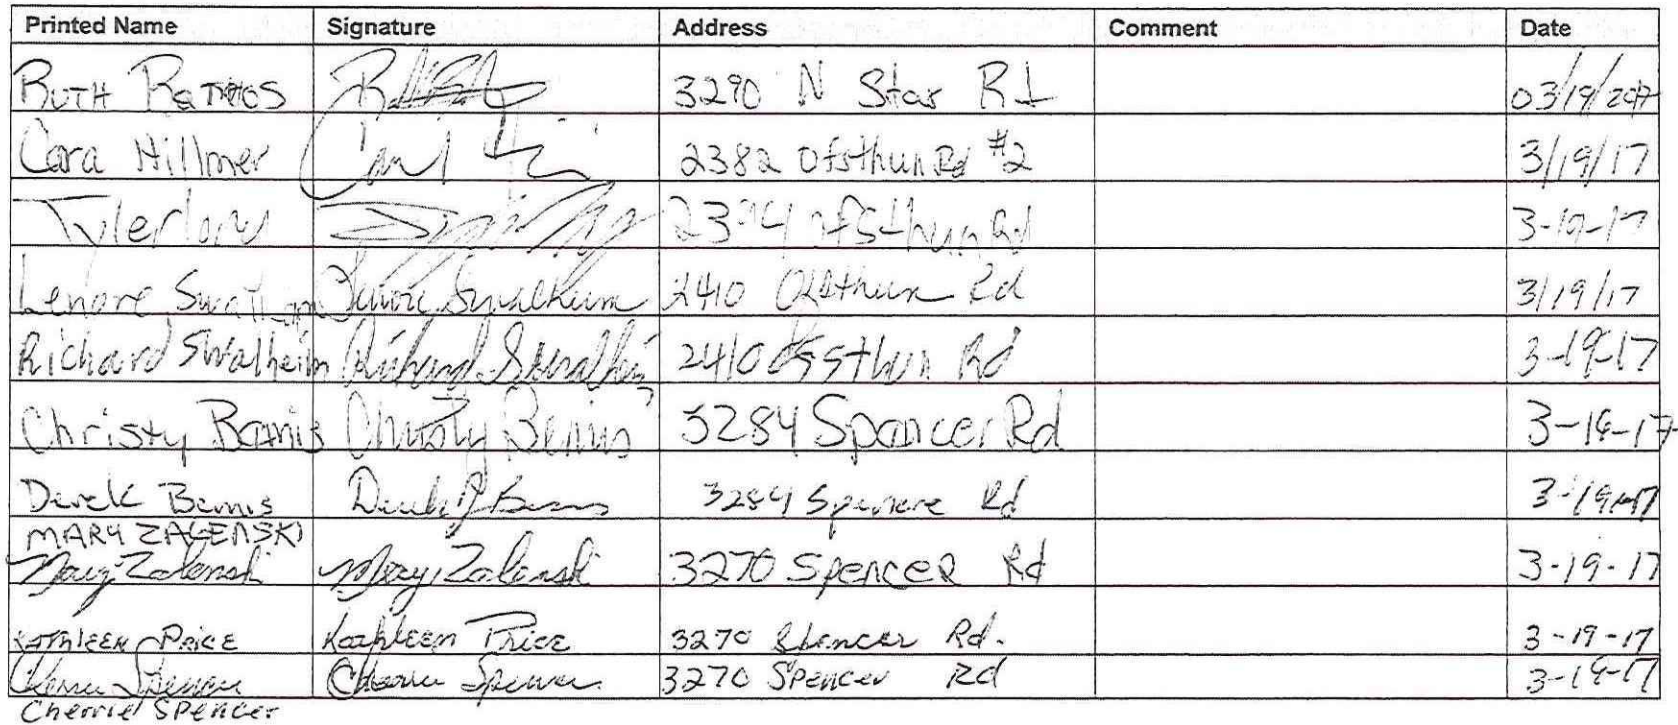 Printed Name Signature Address Comment Date
RUTH 3290 N Star Rd 03/19/2017
Cara Hillmer 2382 Ofsthun Rd #2 3/19/17
Tyler Ofsthun Rd 3-19-17
Lenore Lenore Swalheim 2410 Ofsthun Rd 3/19/17
Richard Swalheim Richard Swalheim 2410 Ofsthun Rd 3-19-17
Christy Bemis Christy Bemis 3284 Spencer Rd 3-19-17
Derek Bemis Derek J Bemis 3284 Spencer Rd 3-19-17
MARY ZALENSKI
Mary Zalenski Mary Zalenski 3270 Spencer Rd 3-19-17
Kathleen Price Kathleen Price 3270 Spencer Rd. 3-19-17
Cherrie Spencer Cherrie Spencer 3270 Spencer Rd 3-19-17
Cherrie Spencer